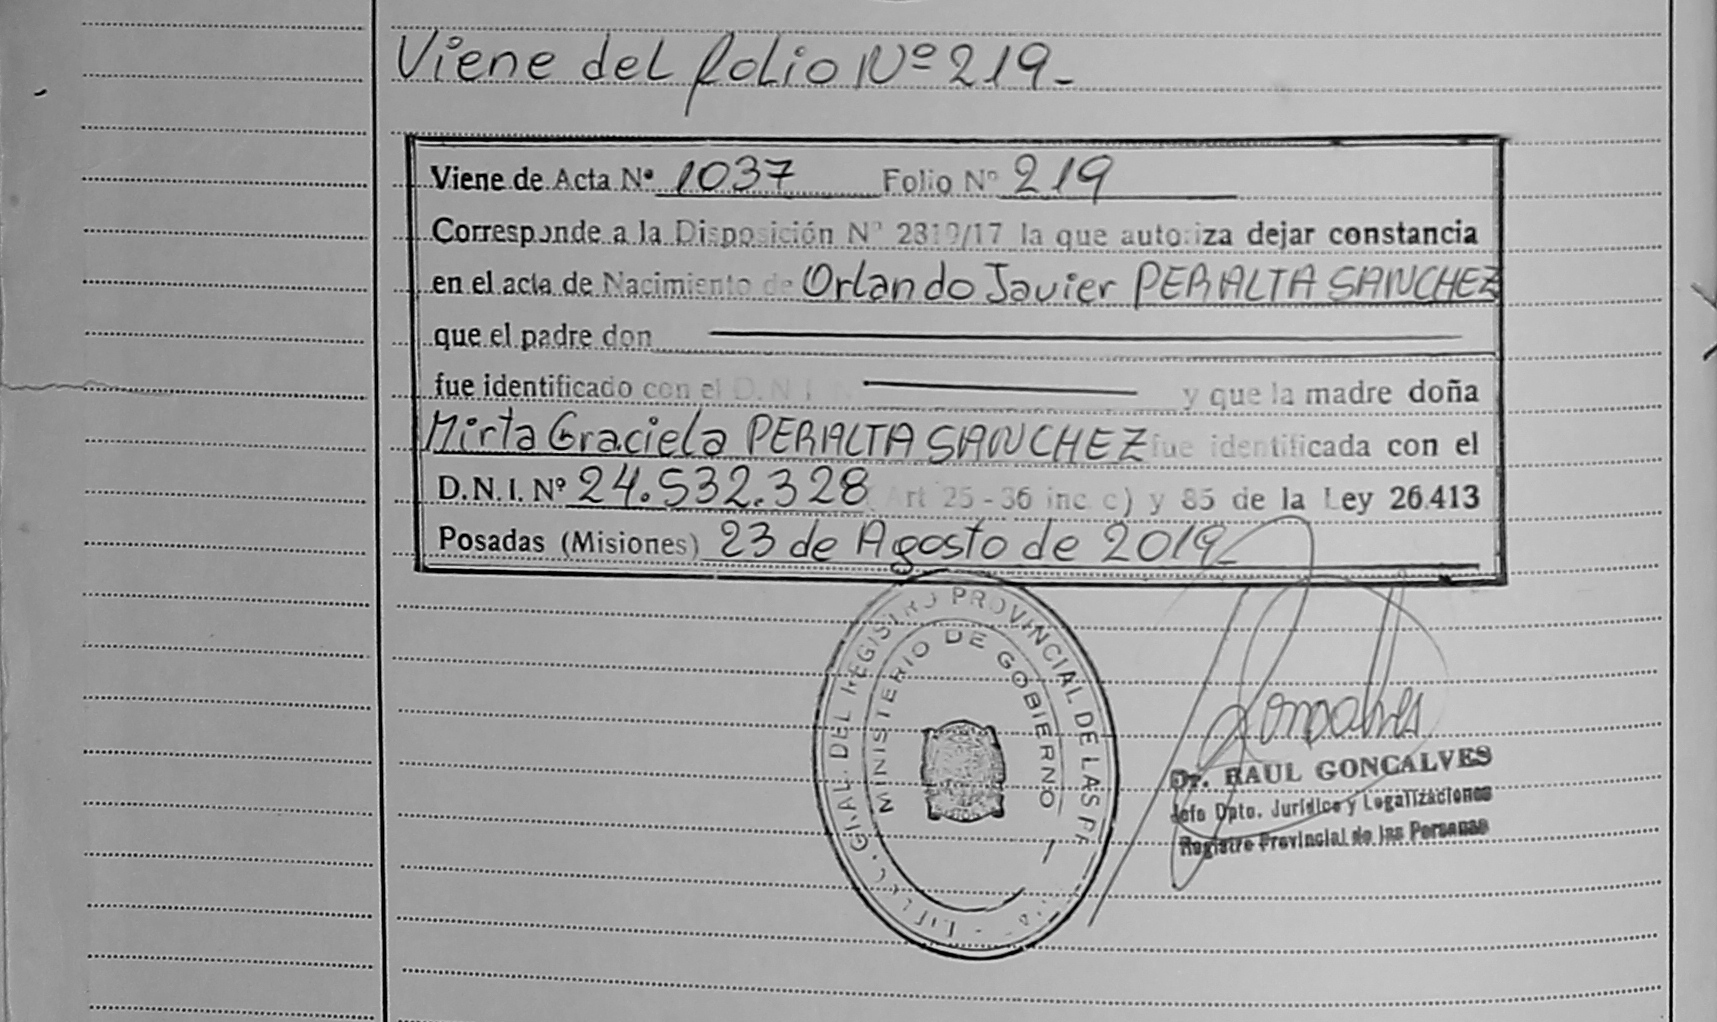 Viene del folio Nº 219-
Viene de Acta Nº 1037 Folio Nº 219
Corresponde a la Disposición Nº 2819/17 la que autoriza dejar constancia
en el acta de Nacimiento de Orlando Javier PERALTA SANCHEZ
que el padre don
fue identificado con el D.N.I. N y que la madre doña
Mirta Graciela PERALTA SANCHEZ fue identificada con el
D.N.I. Nº 24.532.328 (Art 25 - 36 inc c) y 85 de la Ley 26.413
Posadas (Misiones) 23 de Agosto de 2019-
GRAL. DEL REGISTRO PROVINCIAL DE LAS
MINISTERIO DE GOBIERNO
Goncalves
Dr. RAUL GONCALVES
Jefe Dpto. Jurídico y Legalizaciones
Registro Provincial de las Personas